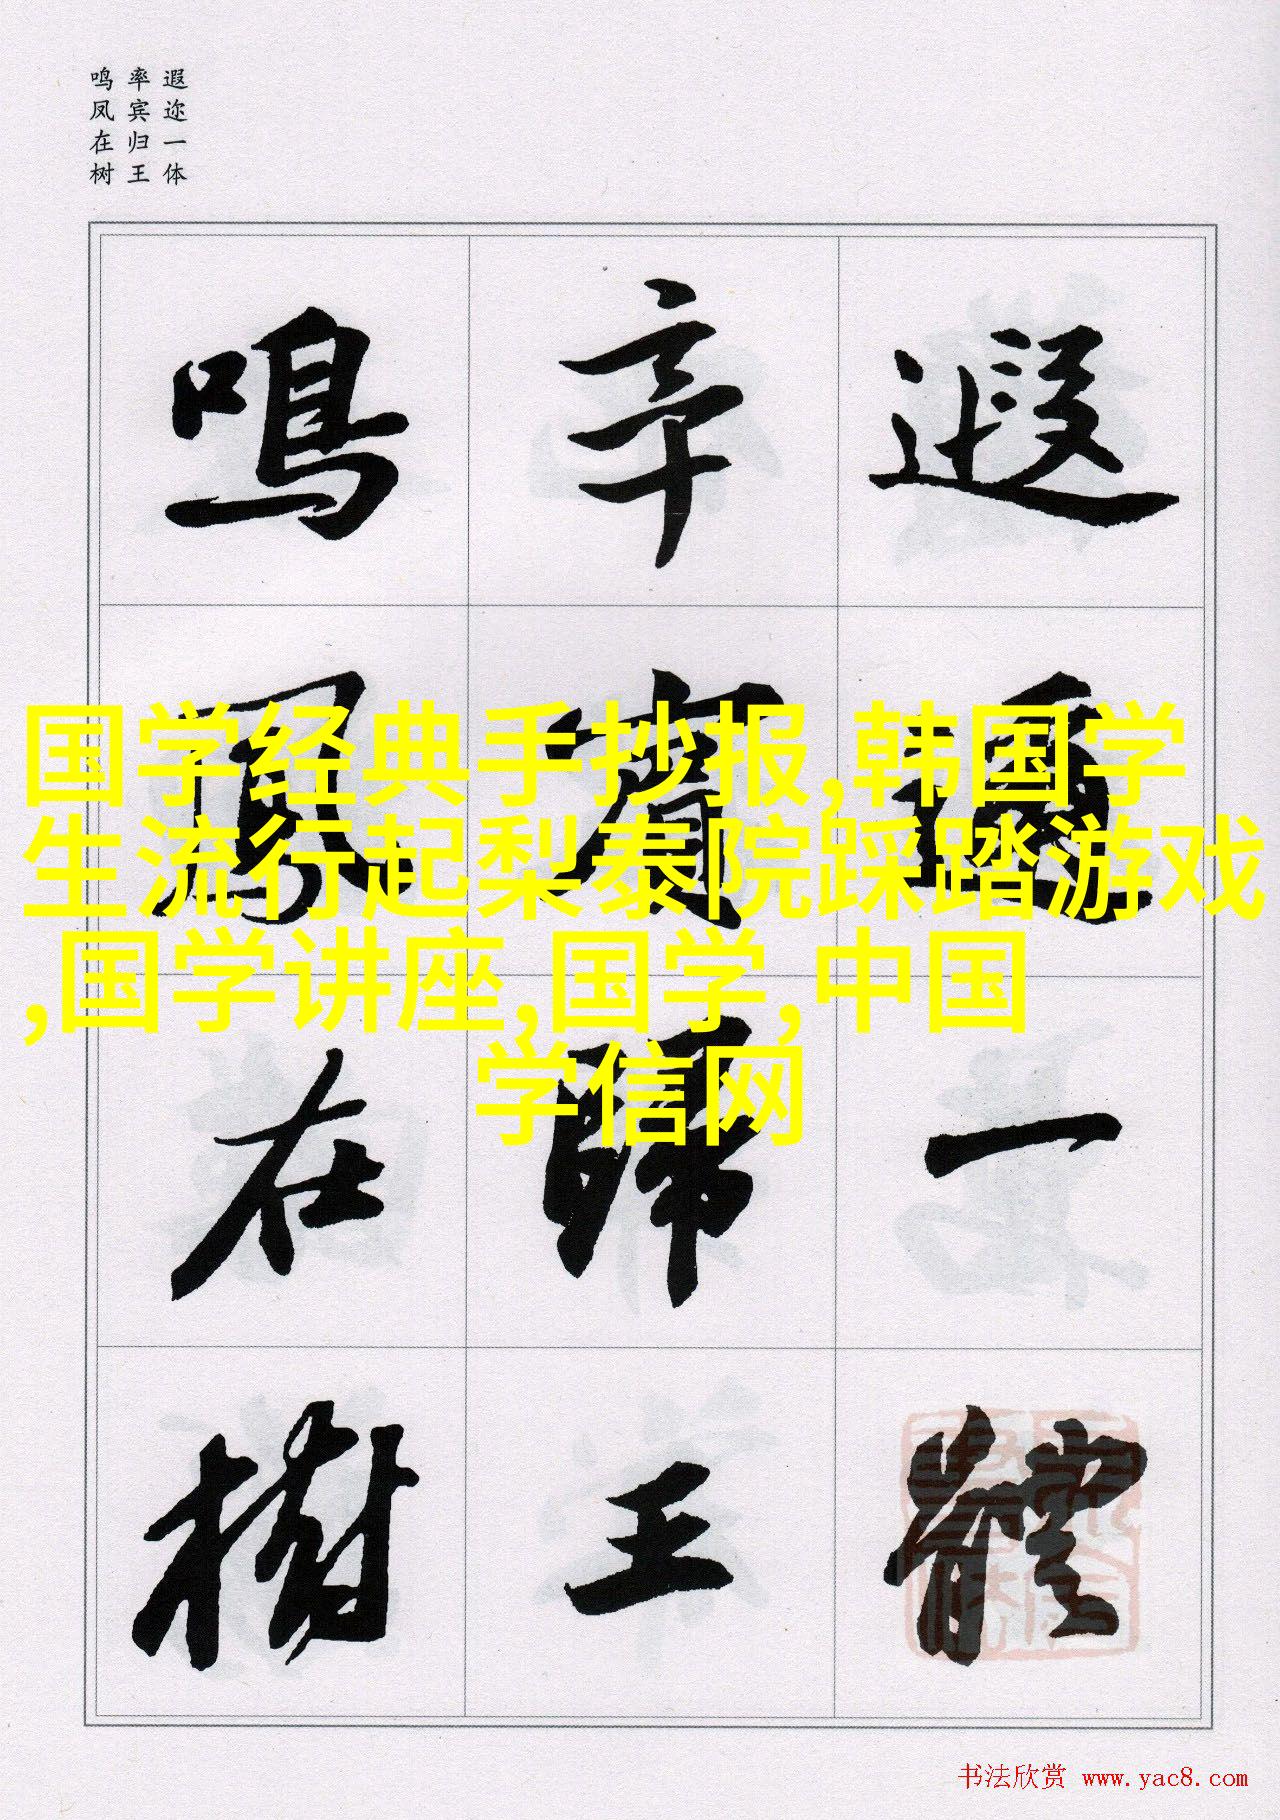 遐迩一体
率宾归王
鸣凤在树
遐邇一體
率賓歸王
鳴鳳在樹
国学经典手抄报,韩国学
生流行起梨泰院踩踏游戏
,国学讲座,国学,中国
学信网
书法欣赏 www.yac8.com